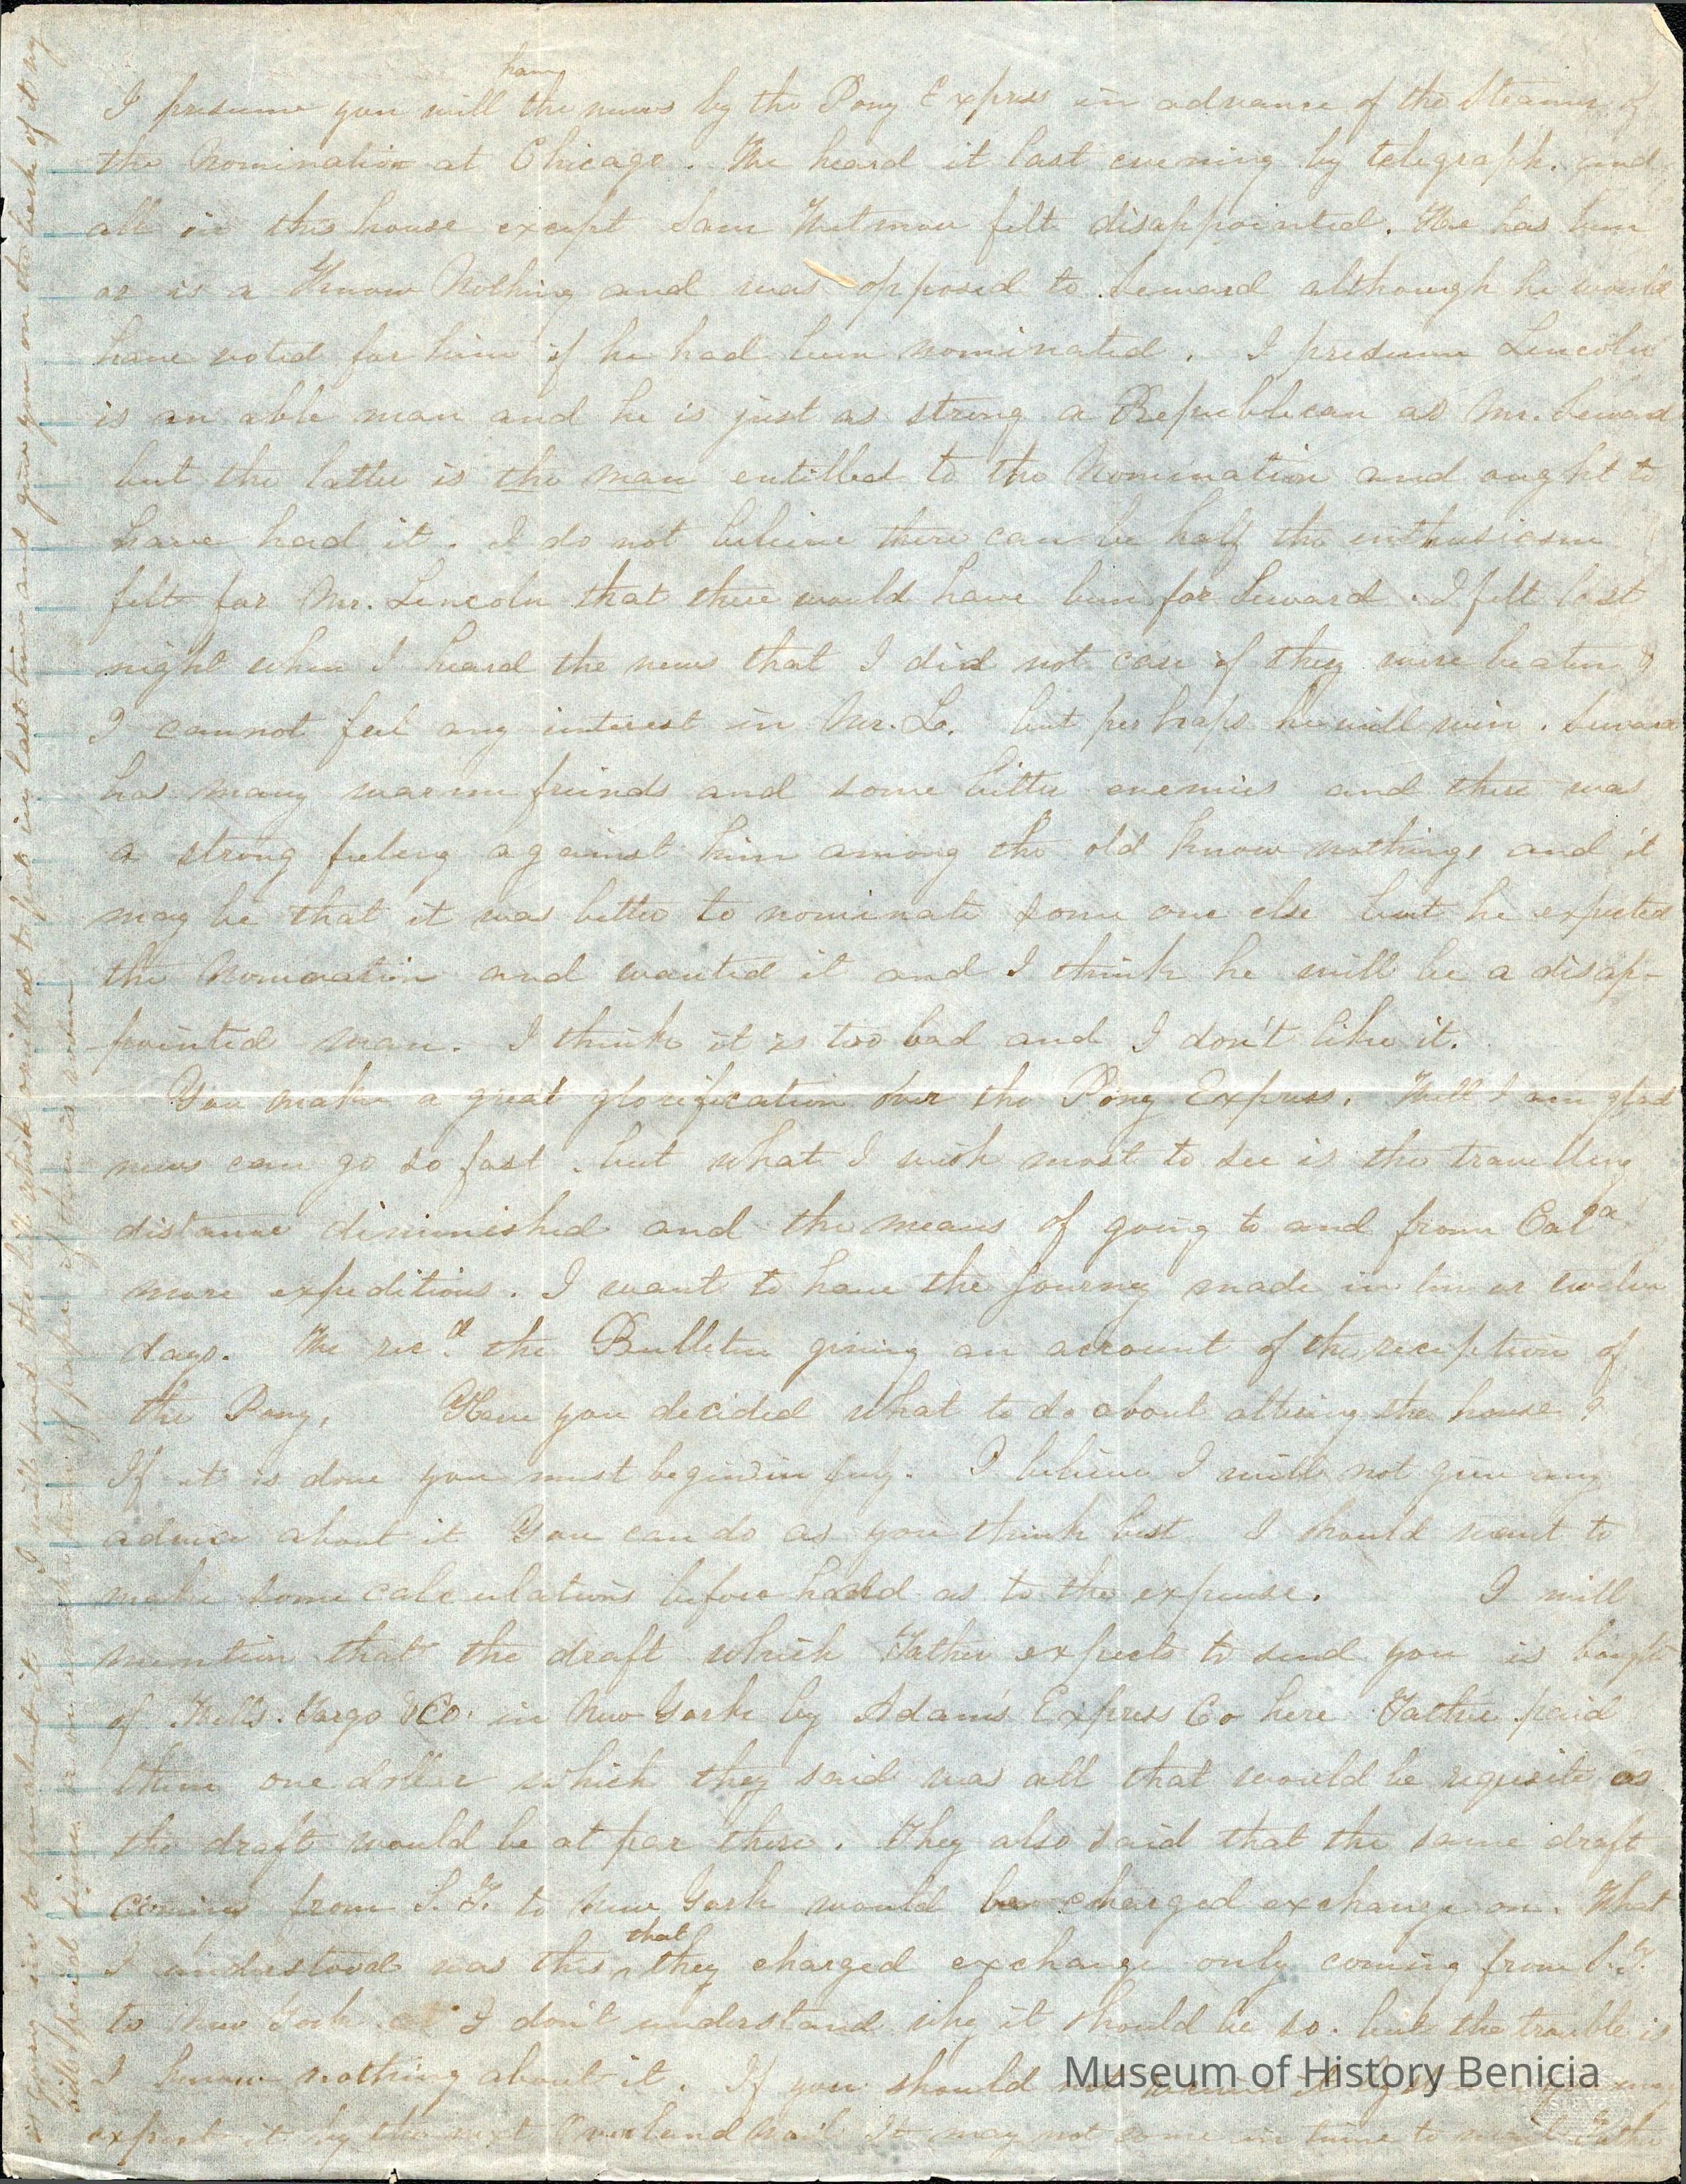 have
I presume you will the news by the Pony Express in advance of the Steamer of
the Nomination at Chicago. We heard it last evening by telegraph. and
all in this house except Sam Wetmore felt disappointed. He has been
or is a Know Nothing and was opposed to Seward although he would
have voted for him if he had been nominated. I presume Lincoln
is an able man and he is just as strong a Republican as Mr. Seward
but the latter is the man entitled to the Nomination and ought to
have had it. I do not believe there can be half the enthusiasm
felt for Mr. Lincoln that there would have been for Seward. I felt last
night when I heard the news that I did not care if they were beaten &
I cannot feel any interest in Mr. L. but perhaps he will win. Seward
has many warm friends and some bitter enemies and there was
a strong feeling against him among the old know nothings and it
may be that it was better to nominate some one else but he expected
the Nomination and wanted it and I think he will be a disap-
pointed man. I think it is too bad and I don't like it.
You make a great glorification over the Pony Express. Well I am glad
news can go so fast. but what I wish most to see is the travelling
distance diminished and the means of going to and from Cala
more expeditious. I want to have the journey made in ten or twelve
days. We recd. the Bulletin giving an account of the reception of
the Pony. Have you decided what to do about altering the house?
If it is done you must begin in July. I believe I will not give any
advice about it You can do as you think best I should want to
make some calculations before hand as to the expense. I will
mention that the draft which Father expects to send you is bought
of Wells. Fargo & Co. in New York by Adam's Express Co here Father paid
them one dollar which they said was all that would be requisite as
the draft would be at par there. They also said that the same draft
coming from S. F. to New York would be charged exchange on. What
that
I understood was this they charged exchange only coming from S. F.
to New York I don't understand why it should be so. but the trouble is
I know nothing about it. If you should not
expect it by the next Overland Mail It may not come in time to Father
I will send the bill which omitted to put in last time and give you on the back of it my
bill of paper if there is room
Museum of History Benicia